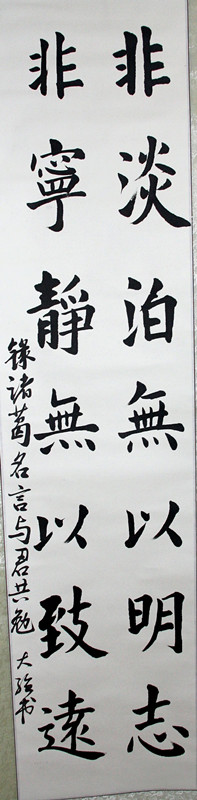 非淡泊無以明志
非寧靜無以致遠
錄諸葛名言与君共勉 大